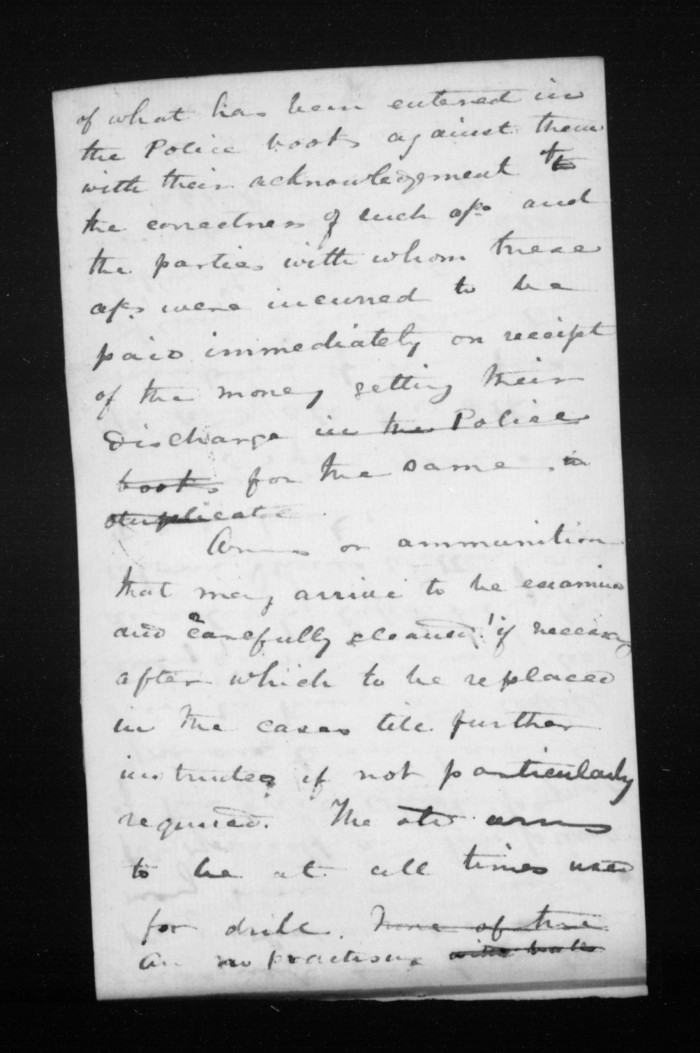 of what has been entered in
the Police books against them
with their acknowledgement to
the correctness of such a/cs and
the parties with whom these
a/cs were incurred to be
paid immediately on receipt
of the money getting their
discharge in the Police
books for the same in
duplicate.
Arms or ammunition
that may arrive to be examined
and carefully cleaned if necessary
after which to be replaced
in the cases till further
instructed if not particularly
required. The old arms
to be at all times used
for drill. None of the
practise with